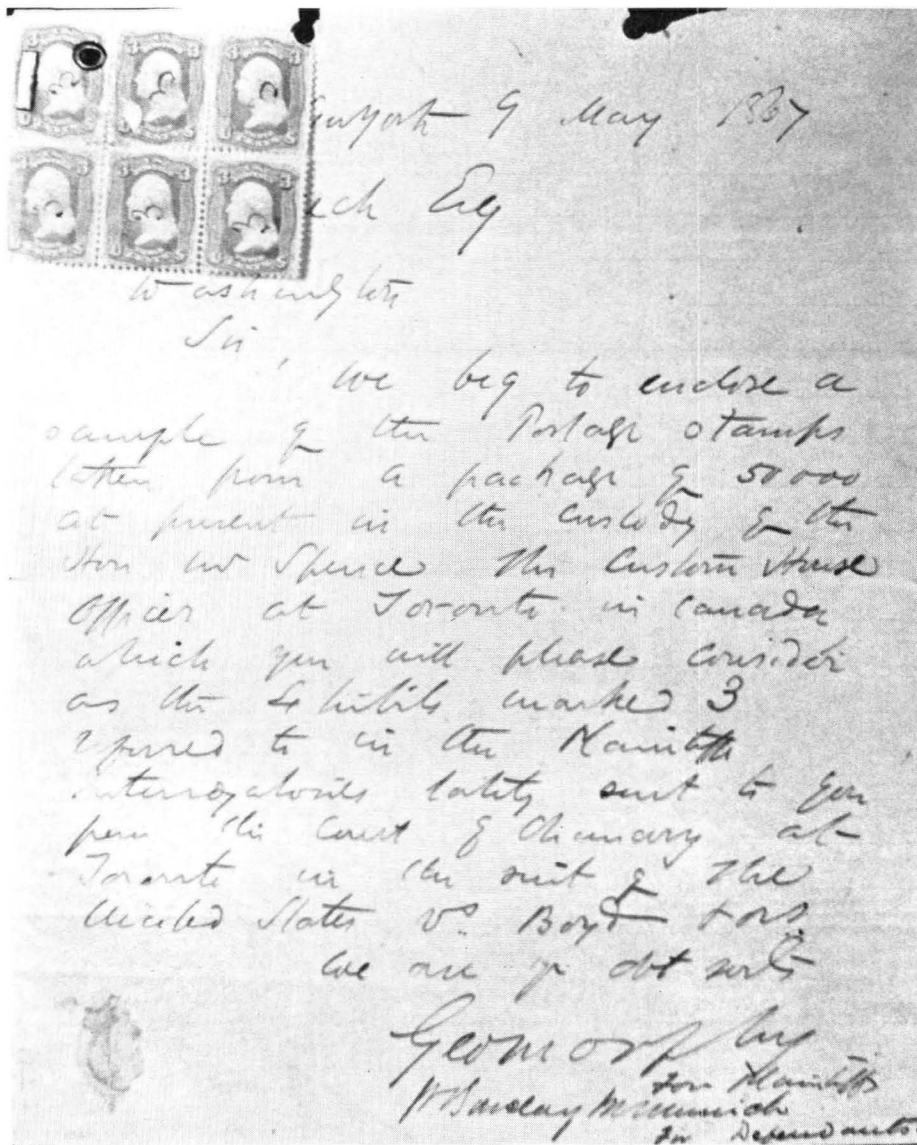 3 3 3
3 3 3
New York 9 May 1867
Esq
Washington
Sir,
We beg to enclose a
sample of the Postage Stamps
taken from a package of 50000
at present in the custody of the
Hon W Spence the Custom House
Officer at Toronto in Canada
which you will please consider
as the Exhibits marked 3
referred to in the Plaintiffs
interrogatories lately sent to you
from the Court of Chancery at
Toronto in the suit of the
United States vs. Boyd & ors.
We are yr obt servts
Geo Murphy
for Plaintiffs
W Barclay McMurrich
for Defendants